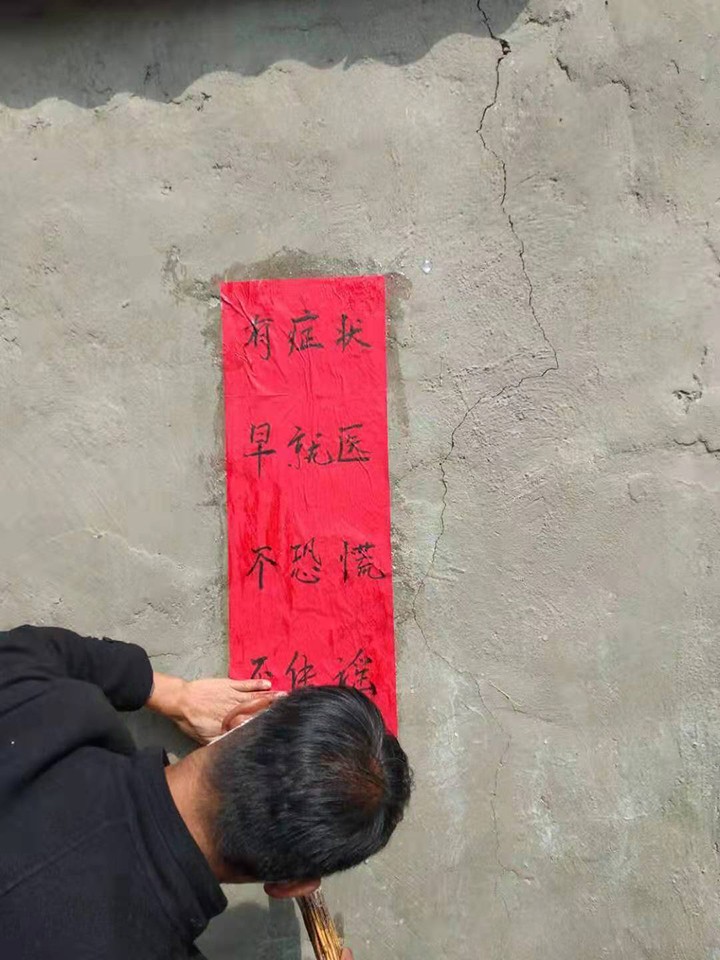 有症状
早就医
不恐慌
不传谣